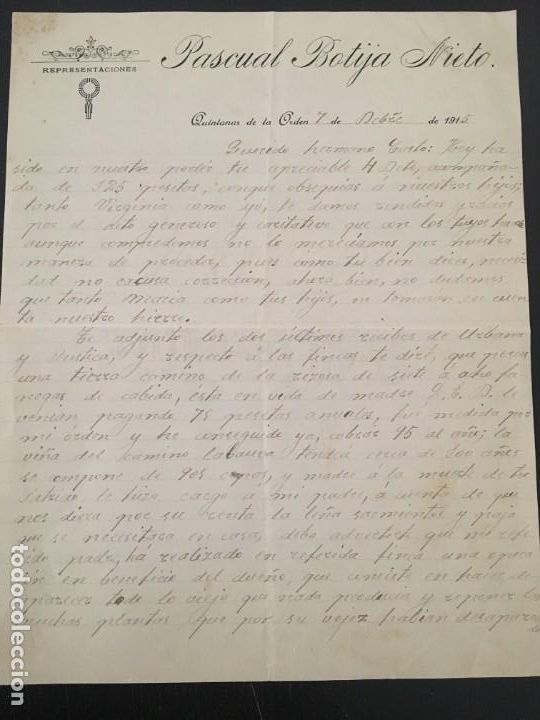 Pascual Botija Nieto.
REPRESENTACIONES
Quintanar de la Orden 7 de Dcbre de 1915
Querido hermano Hoy ha
sido en nuestro poder tu apreciable 4 acompaña-
da de 125 pesetas, conque obsequias á nuestros hijos;
tanto Virginia como yo, te damos rendidas gracias
por el acto generoso y caritativo que con los tuyos haces
aunque comprendemos no lo mereciamos por nuestra
manera de proceder, pues como tu bien dices, neces
dad no escusa correción, ahora bien, no dudamos
que tanto Maria como tus hijos, ni tomaron en cuen
ta nuestro hierro.
Te adjunto los dos últimos recibos de Urbana
y Rustica, y respecto á las fincas te diré, que posees
una tierra camino de la de siete á ocho fa
negas de cabida, ésta en vida de madre le
venian pagando 75 pesetas anuales, fue medida por
mi órden y he conseguido ya, cobrar 95 al año; la
viña del camino tendrá cerca de 200 años
se compone de 905 cepos, y madre á la muerte de tio
Fabian le hizo cargo á mi padre, á cuenta de que
nos diera por su cuenta la leña sarmientos y paja
que se necesitara en casa, debo advertirte que mi refe
rido padre, há realizado en referida finca una opera
ción en beneficio del dueño, que consiste en hacer de
saparecer todo lo viejo que nada producia y reponer las
muchas plantas que por su vejez habian desapareci
do
todocoleccion